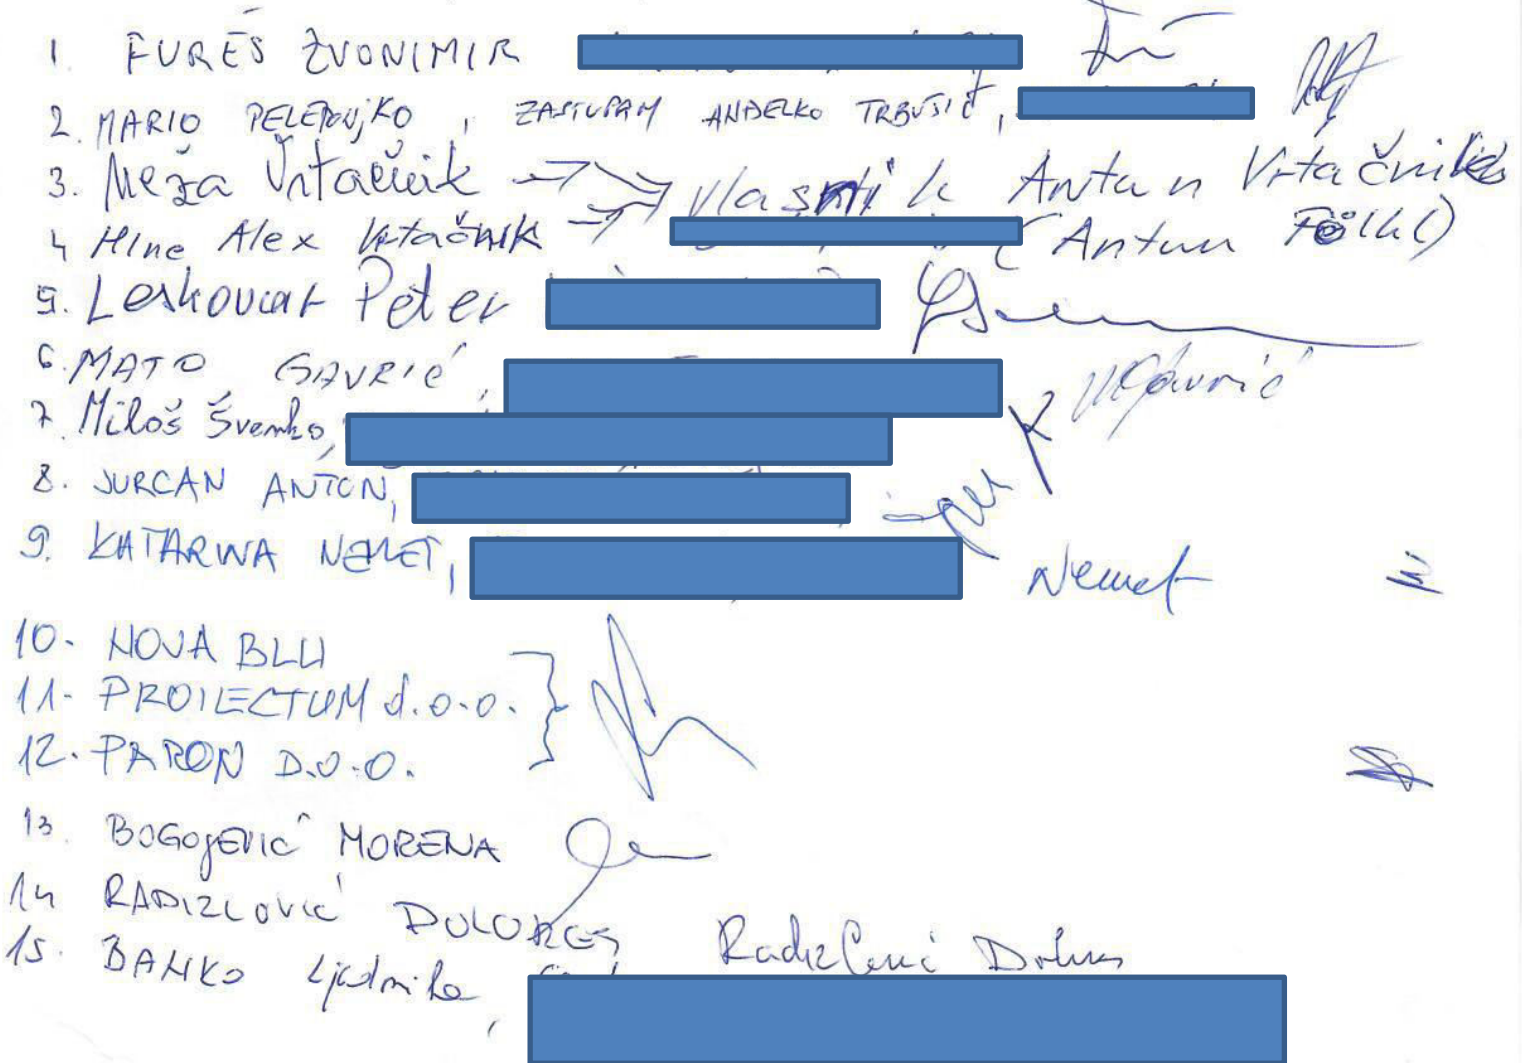 1. FUREŠ ZVONIMIR
2. MARIO PELEPONJKO, ZASTUPAM ANĐELKO TRBUŠIĆ,
3. Neža Vrtačnik → vlasnik Antun Vrtačnik
4 Hine Alex Vrtačnik → (Antun Fölkl)
5. Leskovar Peter
6. MATO GAVRIĆ, MGavrić
7. Miloš Švenko,
8. JURCAN ANTON,
9. KATARINA NEMET, Nemet
10. NOVA BLU
11. PROILECTUM d.o.o.
12. PARON D.O.O.
13. BOGOJEVIĆ MORENA
14 RADIZLOVIĆ DOLORES Radizlović Dolores
15. BANKO Ljudmila,